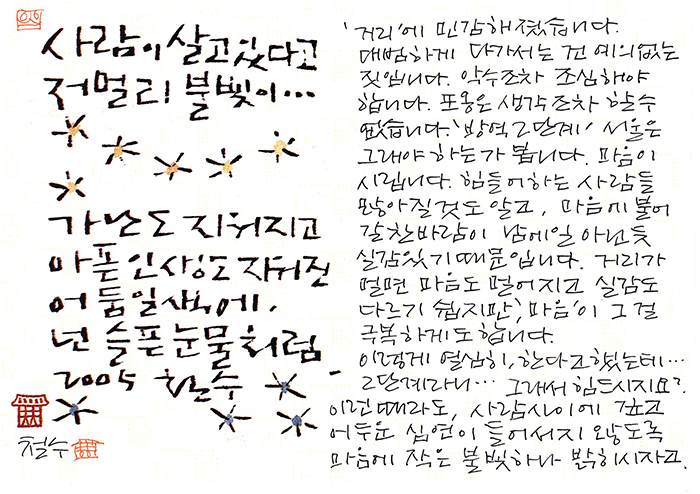 사람이 살고있다고
저멀리 불빛이...
가난도 지워지고
아픈 인상도 지워진
어둠일새벽에.
넌 슬픈눈물처럼
2005 철수
철수
'거리'에 민감해졌습니다.
대범하게 다가서는 건 예의없는
짓입니다. 악수조차 조심해야
합니다. 포옹은 생각조차 할수
없습니다. '방역 2단계' 서울은
그래야 하는가 봅니다. 마음이
시립니다. 힘들어하는 사람들
많아질것도 알고, 마음에 불어
갈 찬바람이 남에일 아닌듯
실감있기 때문입니다. 거리가
멀면 마음도 멀어지고 실감도
다르기 쉽지만, '마음'이 그걸
극복하게도 합니다.
이렇게 열심히, 한다고했는데...
2단계라니... 그래서 힘드시지요?
이런 때라도, 사람사이에 깊고
어두운 심연이 들어서지 않도록
마음에 작은 불빛하나 밝히시자고.